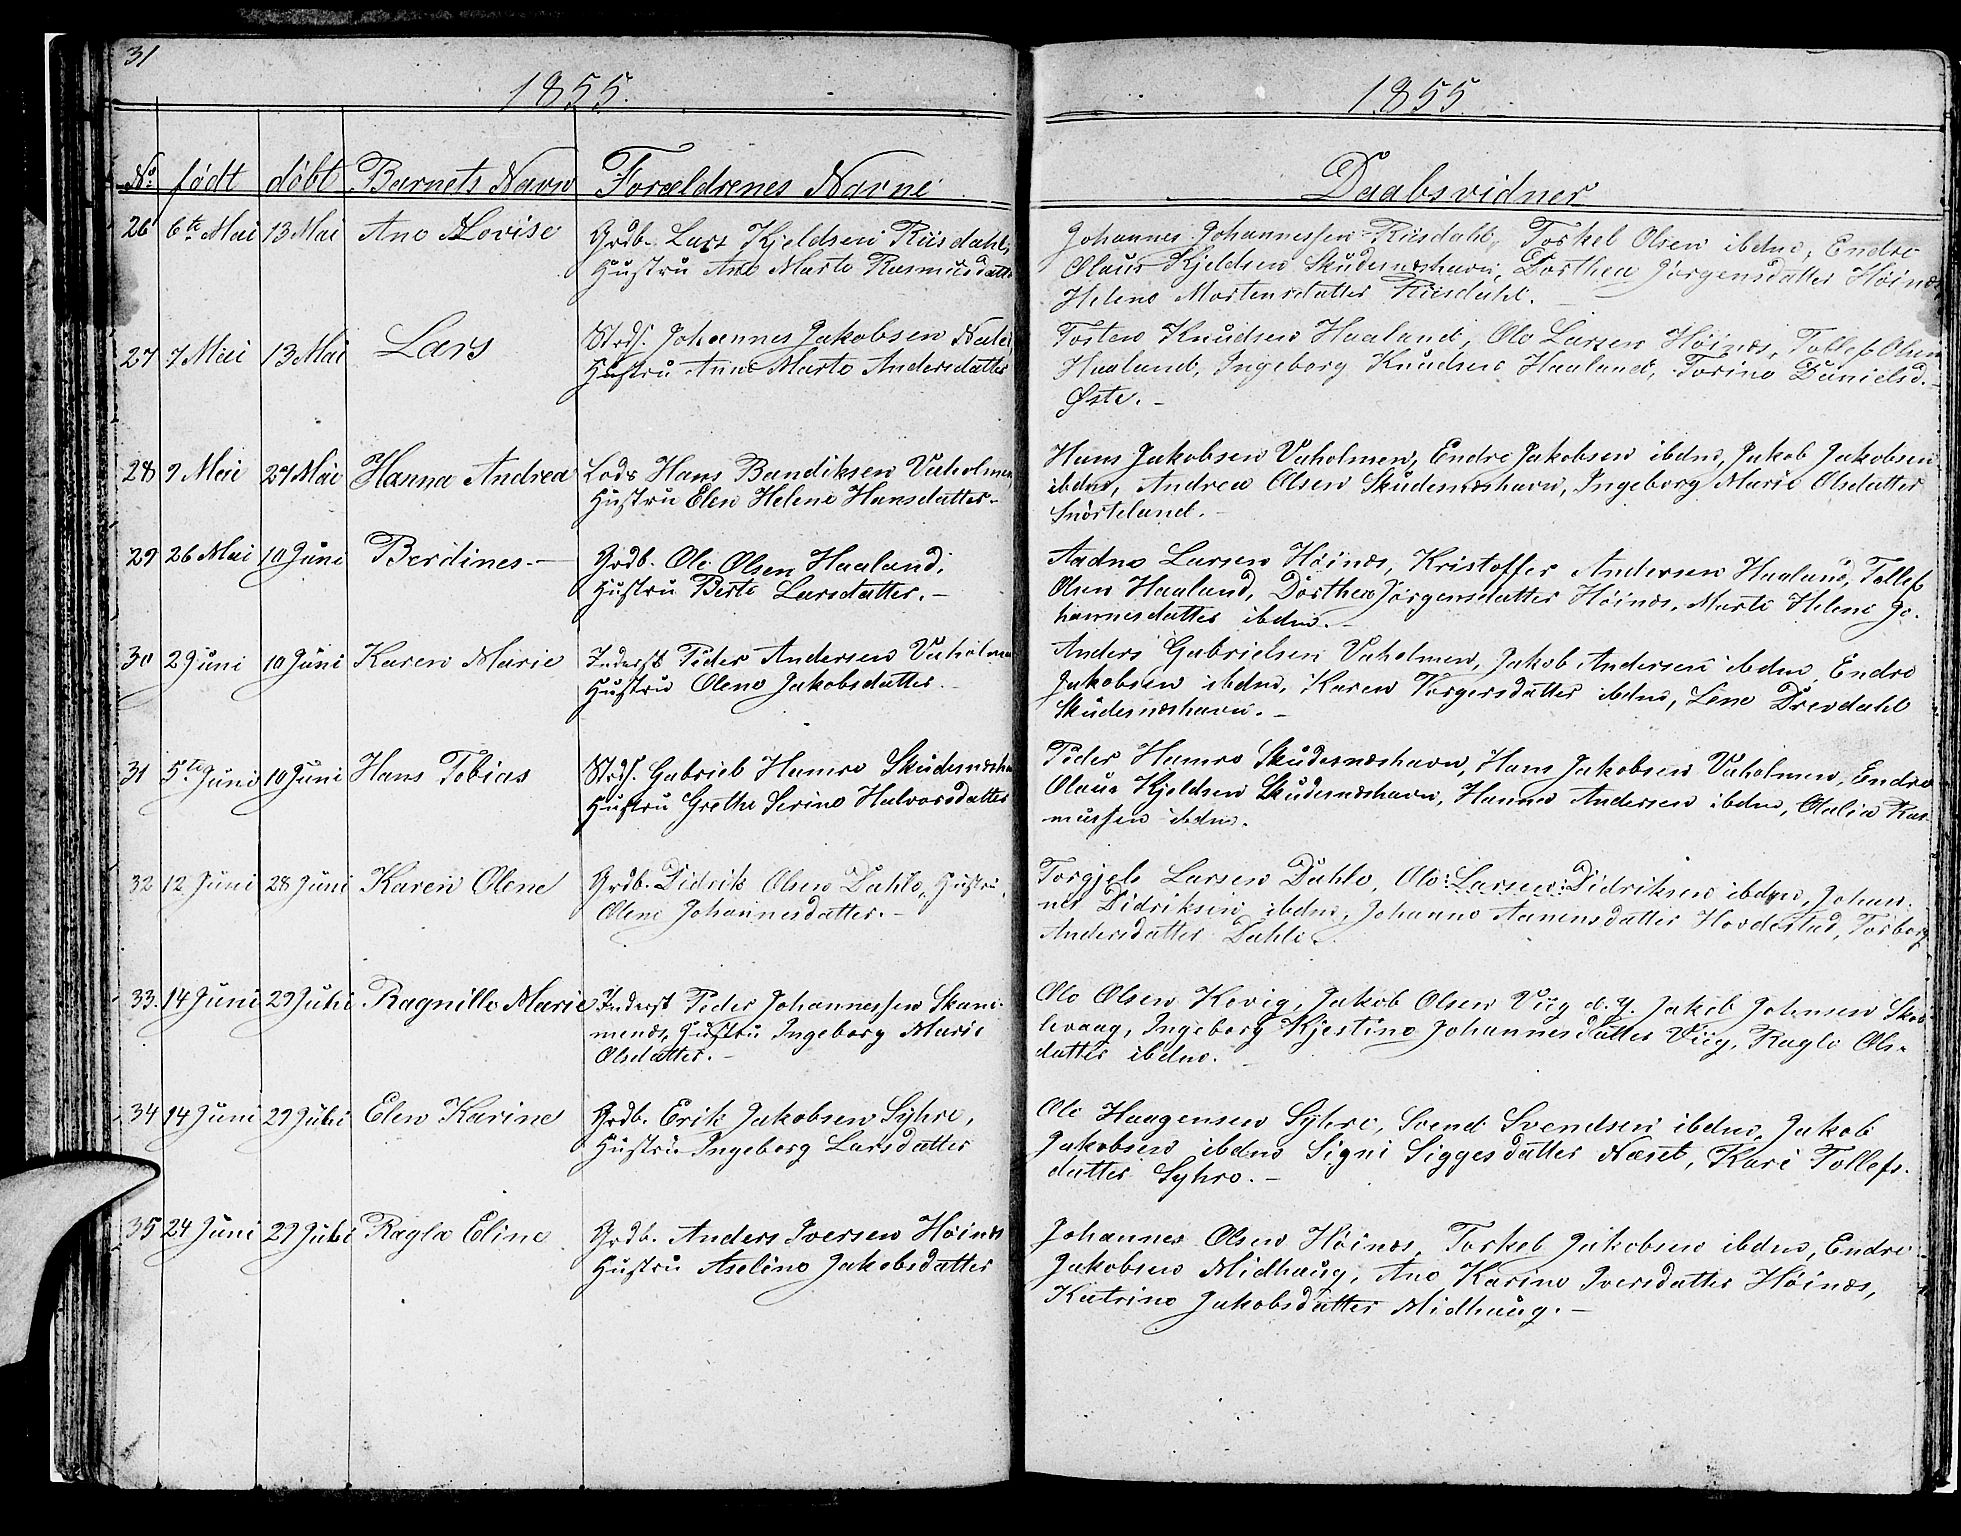 31
1855.
No. født døbt Barnets Navn Forældrenes Navne
26 6te Mai 13 Mai Ane Lovise Grdb. Lars Kjeldsen Riisdahl,
Hustru Ane Marte Rasmusdatter
27 7 Mai 13 Mai Lars Strds. Johannes Jakobsen
Hustru Anne Marte Andersdatter
28 9 Mai 27 Mai Hanna Andrea Lods Hans Bendiksen Vaholmen
Hustru Elen Helene Hansdatter.
29 26 Mai 10 Juni Berdines.— Grdb. Ole Olsen Haaland,
Hustru Berte Larsdatter.—
30 2 Juni 10 Juni Karen Marie Inderst Peder Andersen Vaholmen
Hustru Olene Jakobsdatter.
31 5te Juni 10 Juni Hans Tobias Strds. Gabriel Hamre Skudesnæsha
Hustru Grethe Serine Halvorsdatter
32 12 Juni 28 Juni Karen Olene Grdb. Didrik Olsen Dahle, Hustru,
Olene Johannesdatter.—
33. 14 Juni 29 Juli Ragnille Marie Inderst Peder Johannessen Skani-
mends, Hustru Ingeborg Marie
Olsdatter.—
34 14 Juni 29 Juli Elen Karine Grdb. Erik Jakobsen Syhre,
Hustru Ingeborg Larsdatter
35 24 Juni 29 Juli Ragla Eline Grdb. Anders Iversen Høinæs
Hustru Aseline Jakobsdatter
1855.
Daabsvidner
Johannes Johannessen Riisdahl, Torkel Olsen ibdm, Endre
Olaus Kjeldsen Skudesnæshavn, Dorthea Jørgensdatter Høinæs
Helene Mortensdatter Riisdahl.
Tosten Knudsen Haaland, Ole Larsen Høinæs, Tollef Olsen
Haaland, Ingeborg Knudsen Haaland, Torine Danielsd.
Øste.—
Hans Jakobsen Vaholmen, Endre Jakobsen ibdm, Jakob Jakobsen
ibdm, Andrea Olsen Skudesnæshavn, Ingeborg Marie Olsdatter
Snørteland.—
Aadne Larsen Høinæs, Kristoffer Andersen Haaland, Tollef
Olsen Haaland, Dorthea Jørgensdatter Høinæs, Marte Helene Jo-
hannesdatter ibdm.—
Anders Gabrielsen Vaholmen, Jakob Andersen ibdm, Endre
Jakobsen ibdm, Karen Vorgersdatter ibdm, Lene Drevdahl
Skudesnæshavn.—
Peder Hamre Skudesnæshavn, Hans Jakobsen Vaholmen, Endre
Olaus Kjeldsen Skudesnæshavn, Hanne Andersen ibdm, Olalia Ras-
mussen ibdm.
Torgjels Larsen Dahle, Ole Larsen Didriksen ibdm, Johan-
nes Didriksen ibdm, Johanne Aanensdatter Hovdestad, Torborg
Andersdatter Dahle.
Ole Olsen Kevig, Jakob Olsen Viig d. y. Jakob Johnsen Skaa-
levaag, Ingeborg Kjestine Johannesdatter Viig, Ragle Ols-
datter ibdm.
Ole Haagensen Syhre, Svend Svendsen ibdm, Jakob
Jakobsen ibdm Signi Siggesdatter Næset, Kari Tollefs-
datter Syhre.—
Johannes Olsen Høinæs, Torkel Jakobsen ibdm, Endre
Jakobsen Midhaug, Ane Karine Iversdatter Høinæs,
Katrine Jakobsdatter Midhaug.—